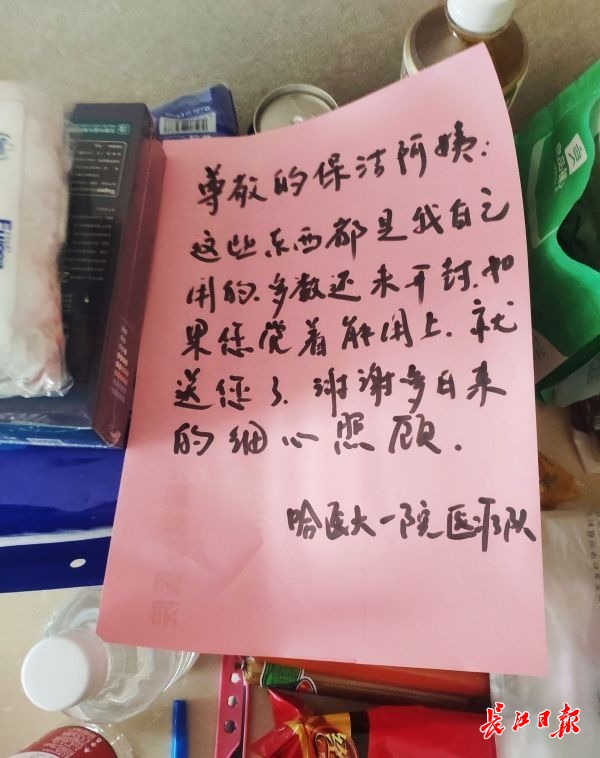 尊敬的保洁阿姨：
这些东西都是我自己
用的.多数还未开封.如
果您觉着能用上.就
送您了.谢谢多日来
的细心照顾.
哈医大一院医疗队
长江日报